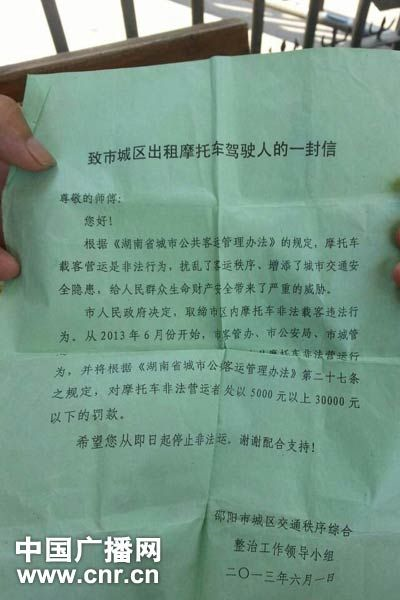 致市城区出租摩托车驾驶人的一封信
尊敬的师傅:
您好!
根据《湖南省城市公共客运管理办法》的规定,摩托车
载客营运是非法行为,扰乱了客运秩序、增添了城市交通安
全隐患,给人民群众生命财产安全带来了严重的威胁。
市人民政府决定,取缔市区内摩托车非法载客违法行
为。从2013年6月份开始,市客管办、市公安局、市城管
摩托车非法营运行
为,并将根据《湖南省城市公共客运管理办法》第二十七条
之规定,对摩托车非法营运者处以5000元以上30000元
以下的罚款。
希望您从即日起停止非法运。谢谢配合支持!
邵阳市城区交通秩序综合
整治工作领导小组
二〇一三年六月一日
中国广播网
www.cnr.cn